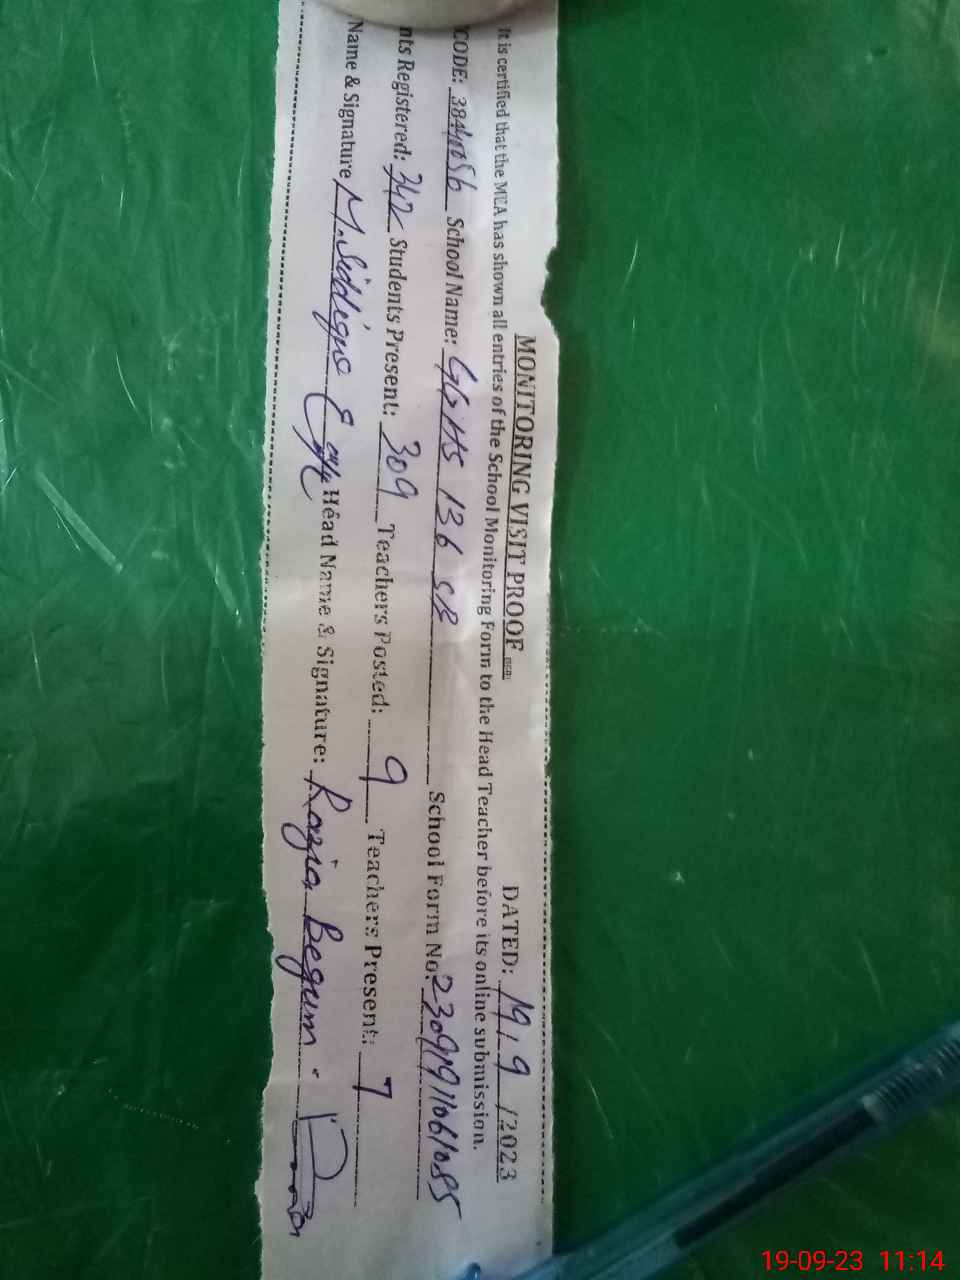 MONITORING VISIT PROOF DATED: 19/9/2023
It is certified that the MEA has shown all entries of the School Monitoring Form to the Head Teacher before its online submission.
CODE: School Name: GGHS 136 SB School Form No:
nts Registered: 342 Students Present: 309 Teachers Posted: 9 Teachers Present: 7
Name & Signature M. Siddique Head Name & Signature: Razia Begum
19-09-23 11:14